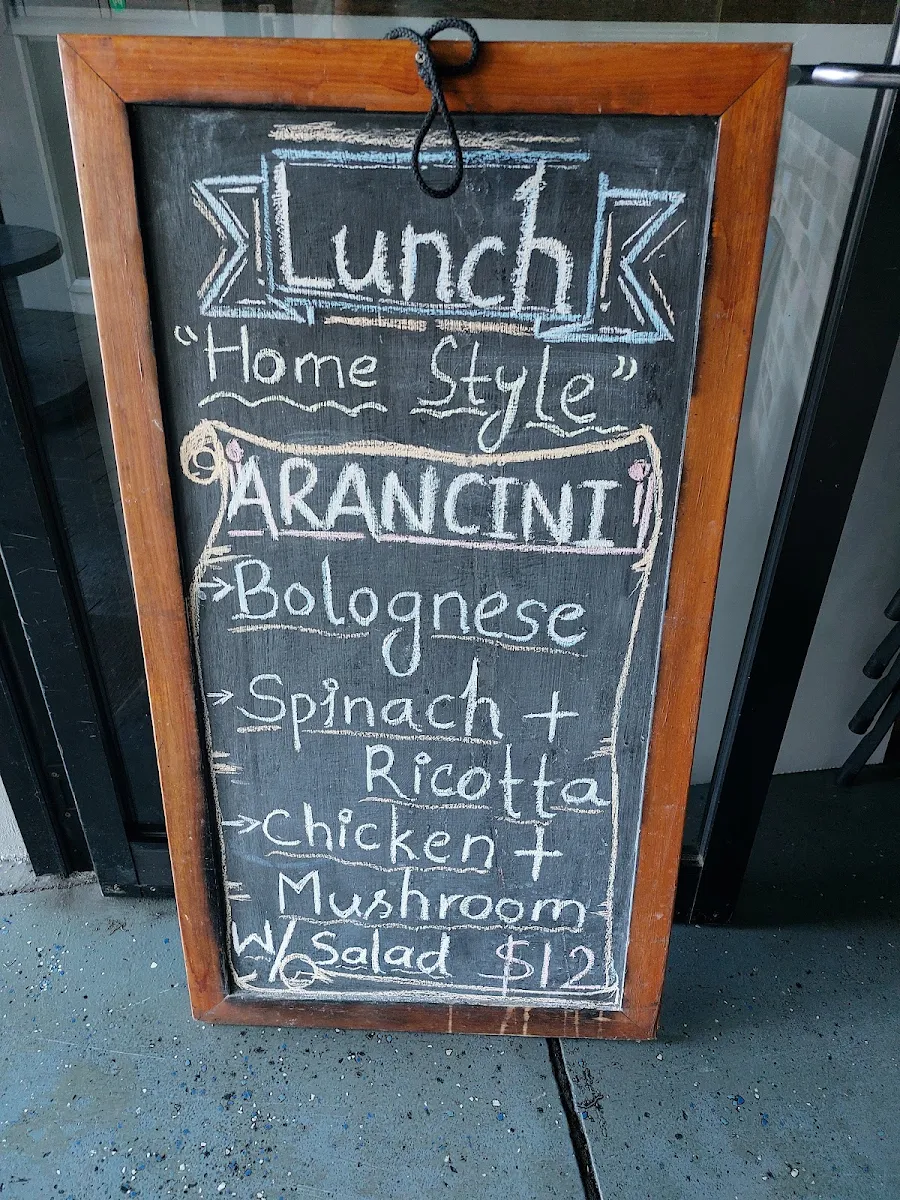 Lunch
"Home Style"
ARANCINI
→Bolognese
→Spinach +
Ricotta
→Chicken +
Mushroom
W/ Salad $12